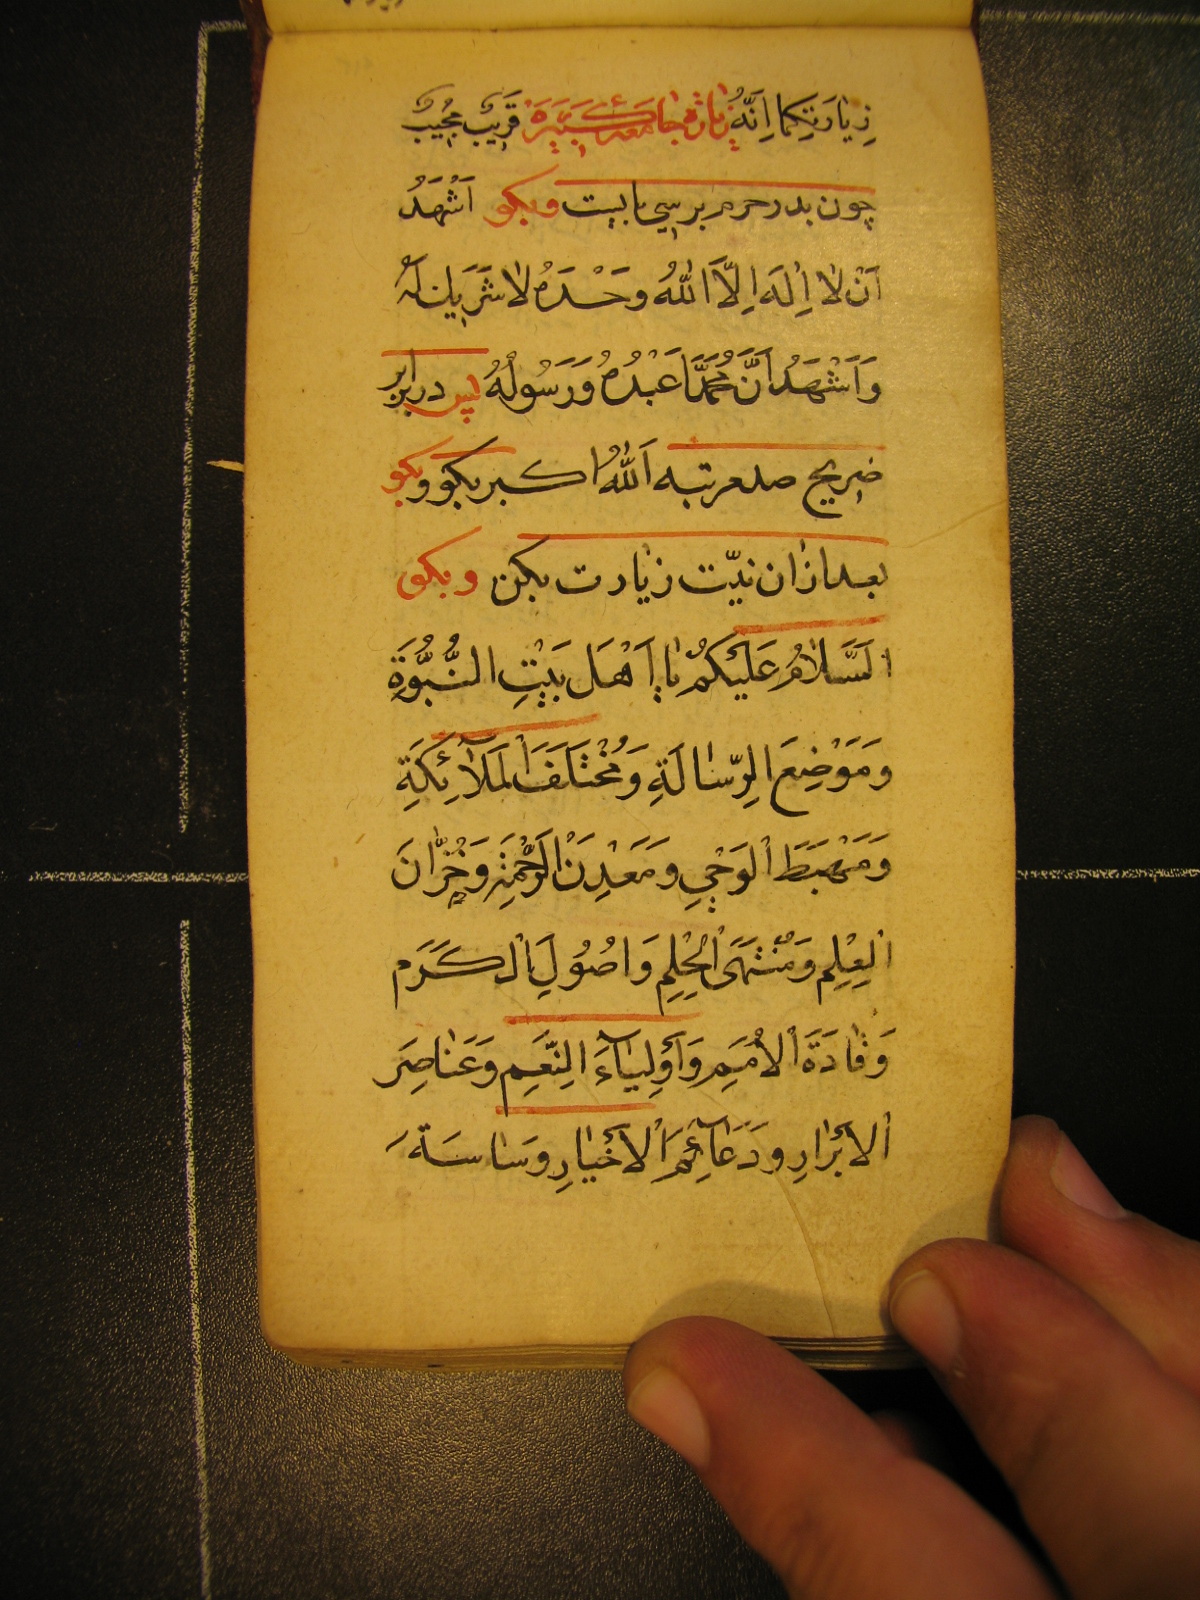 زِیٰارَتِکُما اِنَّهُ زیٰارَة جٰامعهٔ کَبیَرَة قَریٖبٌ مُجیٖبٌ
چون بدر حرم برسی بایست وبکو اَشْهَدُ
اَنْ لاٰ اِلٰهَ اِلاَّ اللّٰهُ وَحْدَهُ لاٰ شَرٖیكَ لَهُ
وَاَشْهَدُ اَنَّ مُحَمَّدًا عَبْدُهُ وَرَسُولُهُ پس دربرابر
ضریح صد مرتبه اَللّٰهُ اکبر بکو وبکو
بعد ازان نیّت زیٰارت بکن وبکو
اَلسَّلاٰمُ عَلَیْکُمْ یٰا اَهْلَ بَیْتِ النُّبُوَّةِ
وَمَوْضِعَ الرِّسٰالَةِ وَمُخْتَلَفَ الْمَلاٰۤئِکَةِ
وَمَهْبَطَ الْوَحْیِ وَمَعْدِنَ الرَّحْمَةِ وَخُزّٰانَ
الْعِلْمِ وَمُنْتَهَی الْحِلْمِ وَاُصُولَ الْکَرَمِ
وَقٰادَةَ الْاُمَمِ وَاَوْلِیٰاۤءَ النِّعَمِ وَعَنٰاصِرَ
الْاَبْرٰارِ وَدَعٰاۤئِمَ الْاَخْیٰارِ وَسٰاسَةَ